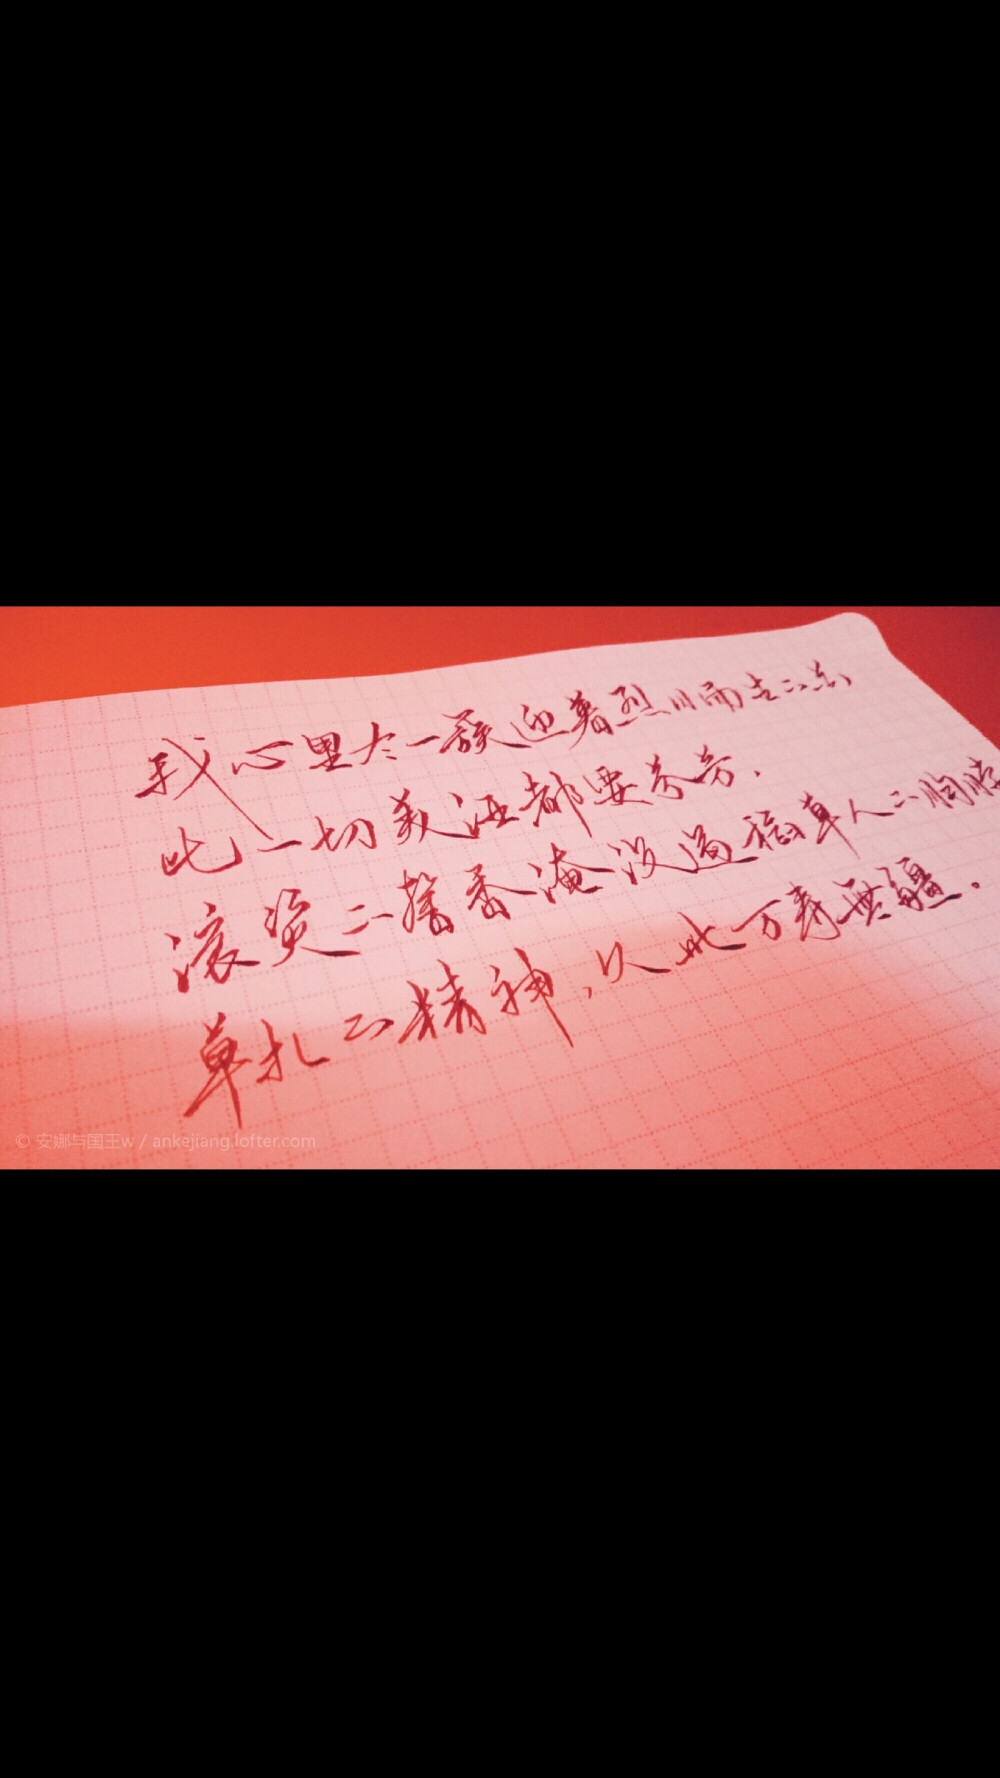 我心里有一簇迎着烈日而生的花,
比一切美酒都要芬芳.
滚烫的馨香淹没过稻草人的胸膛
草扎的精神,从此万寿無疆.
© 安娜与国王w / ankejiang.lofter.com